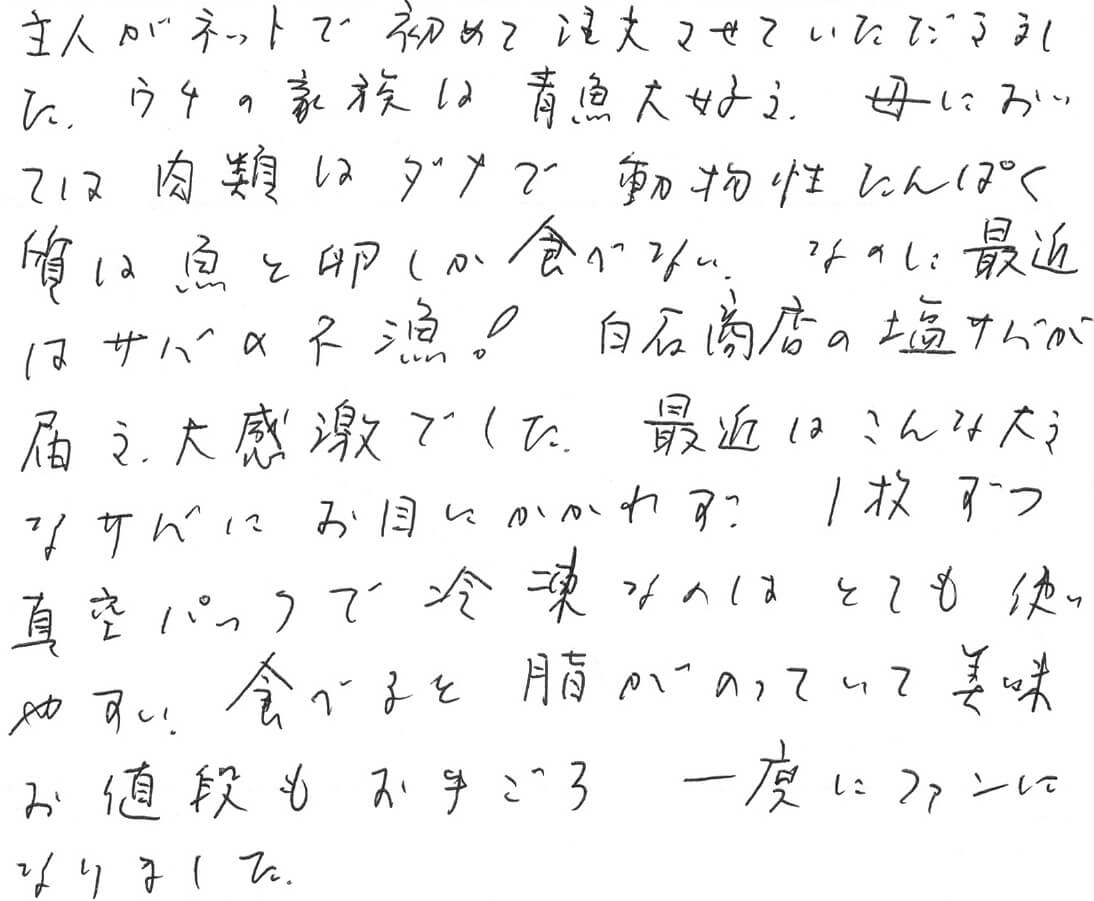 主人がネットで初めて注文させていただきまし
た。ウチの家族は青魚大好き。母におい
ては肉類はダメで動物性たんぱく
質は魚と卵しか食べない。なのに最近
はサバの不漁!白石商店の塩サバが
届き、大感激でした。最近はこんな大き
なサバにお目にかかれず、1枚ずつ
真空パックで冷凍なのはとても使い
やすい。食べると脂がのっていて美味
お値段もお手ごろ 一度にファンに
なりました。